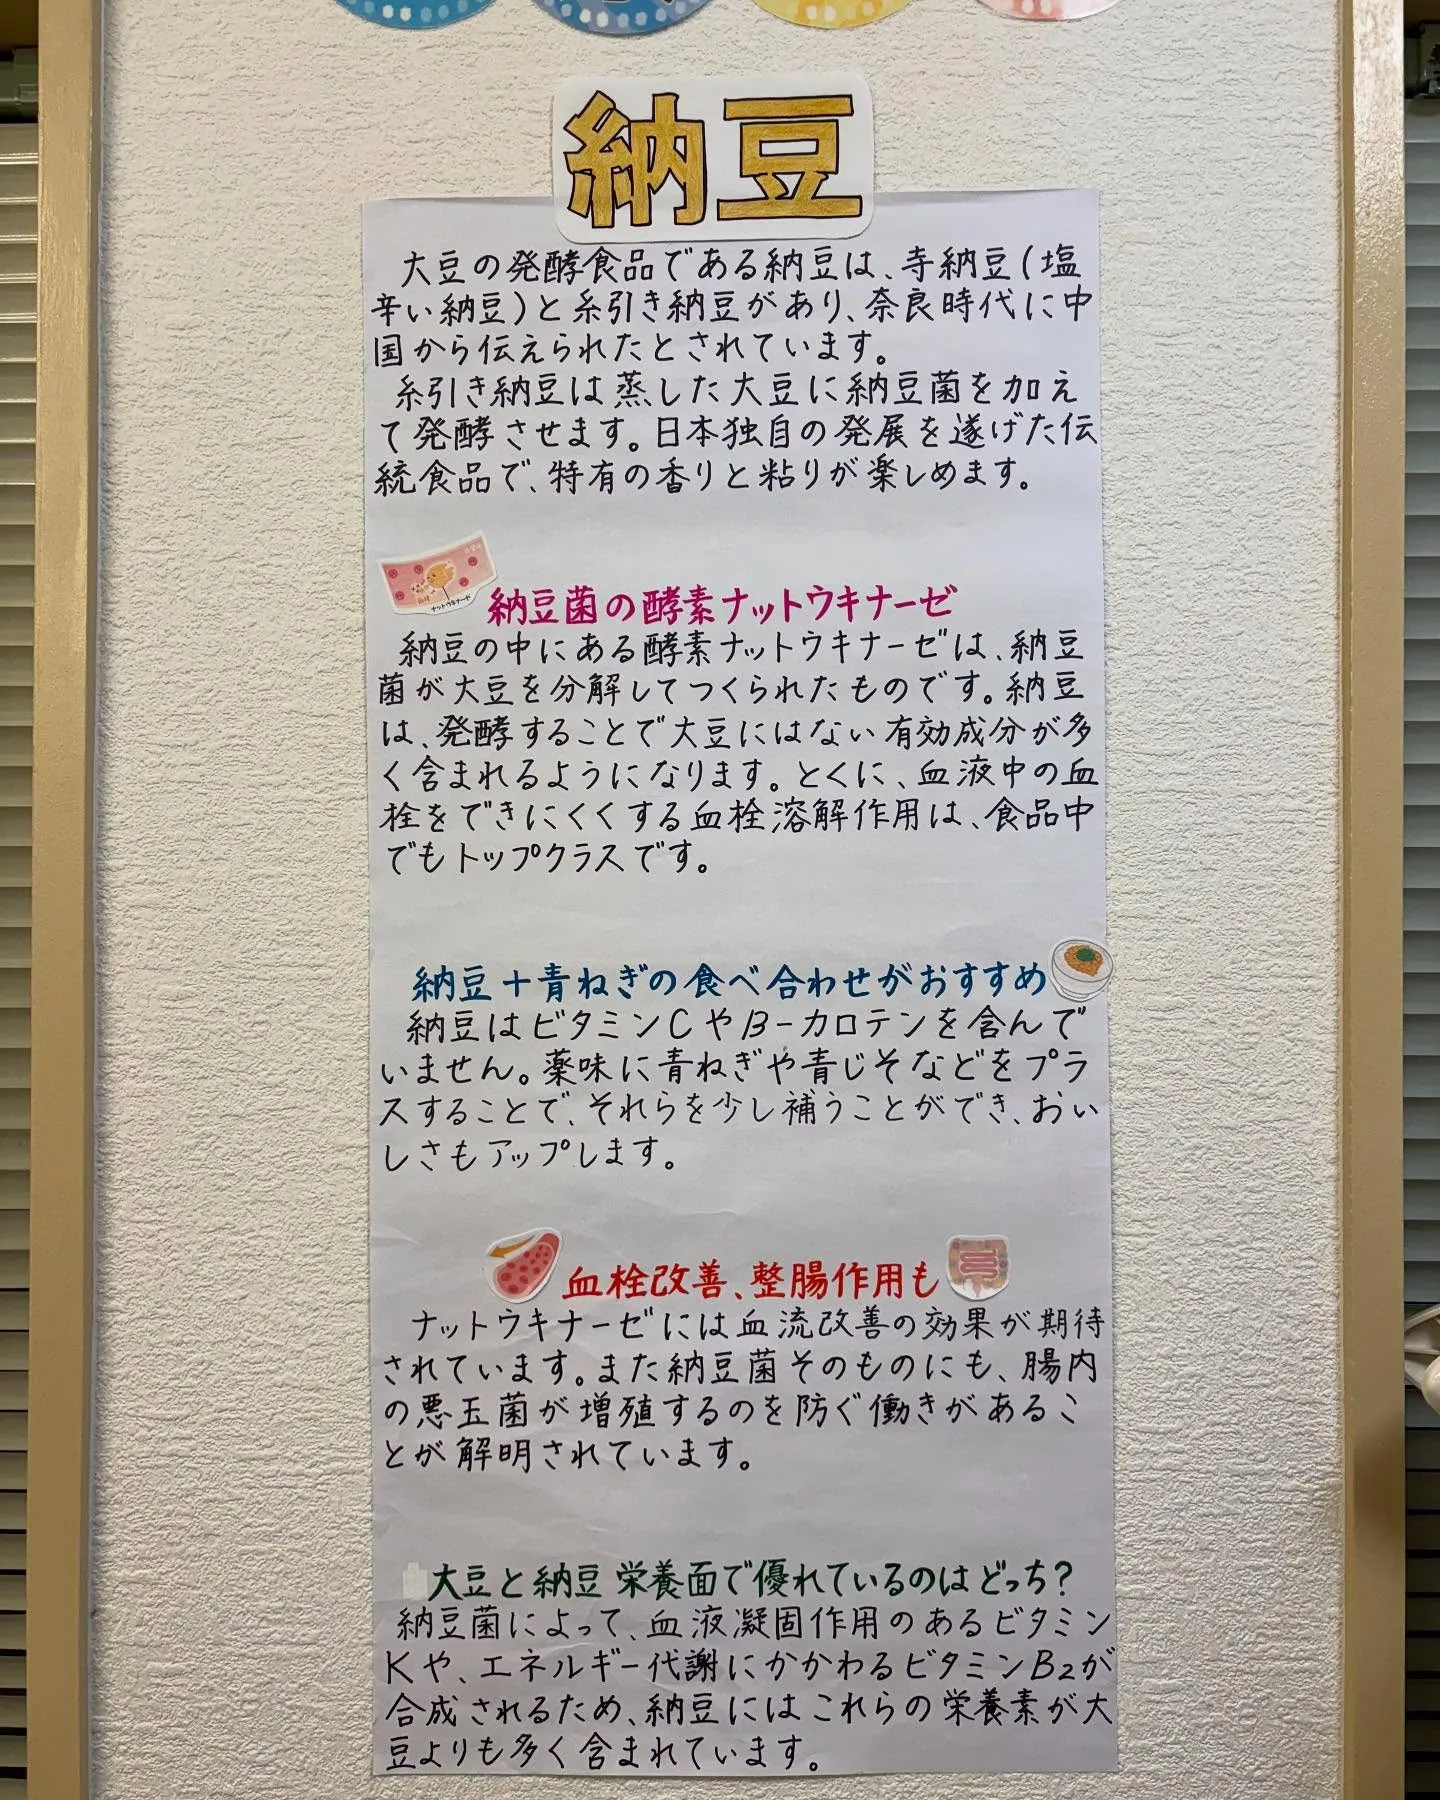 納豆
大豆の発酵食品である納豆は、寺納豆(塩
辛い納豆)と糸引き納豆があり、奈良時代に中
国から伝えられたとされています。
糸引き納豆は蒸した大豆に納豆菌を加え
て発酵させます。日本独自の発展を遂げた伝
統食品で、特有の香りと粘りが楽しめます。
ナットウキナーゼ
納豆菌の酵素ナットウキナーゼ
納豆の中にある酵素ナットウキナーゼは、納豆
菌が大豆を分解してつくられたものです。納豆
は、発酵することで大豆にはない有効成分が多
く含まれるようになります。とくに、血液中の血
栓をできにくくする血栓溶解作用は、食品中
でもトップクラスです。
納豆+青ねぎの食べ合わせがおすすめ
納豆はビタミンCやβ-カロテンを含んで
いません。薬味に青ねぎや青じそなどをプラ
スすることで、それらを少し補うことができ、おい
しさもアップします。
血栓改善、整腸作用も
ナットウキナーゼには血流改善の効果が期待
されています。また納豆菌そのものにも、腸内
の悪玉菌が増殖するのを防ぐ働きがあるこ
とが解明されています。
大豆と納豆 栄養面で優れているのはどっち?
納豆菌によって、血液凝固作用のあるビタミン
Kや、エネルギー代謝にかかわるビタミンB2が
合成されるため、納豆にはこれらの栄養素が大
豆よりも多く含まれています。